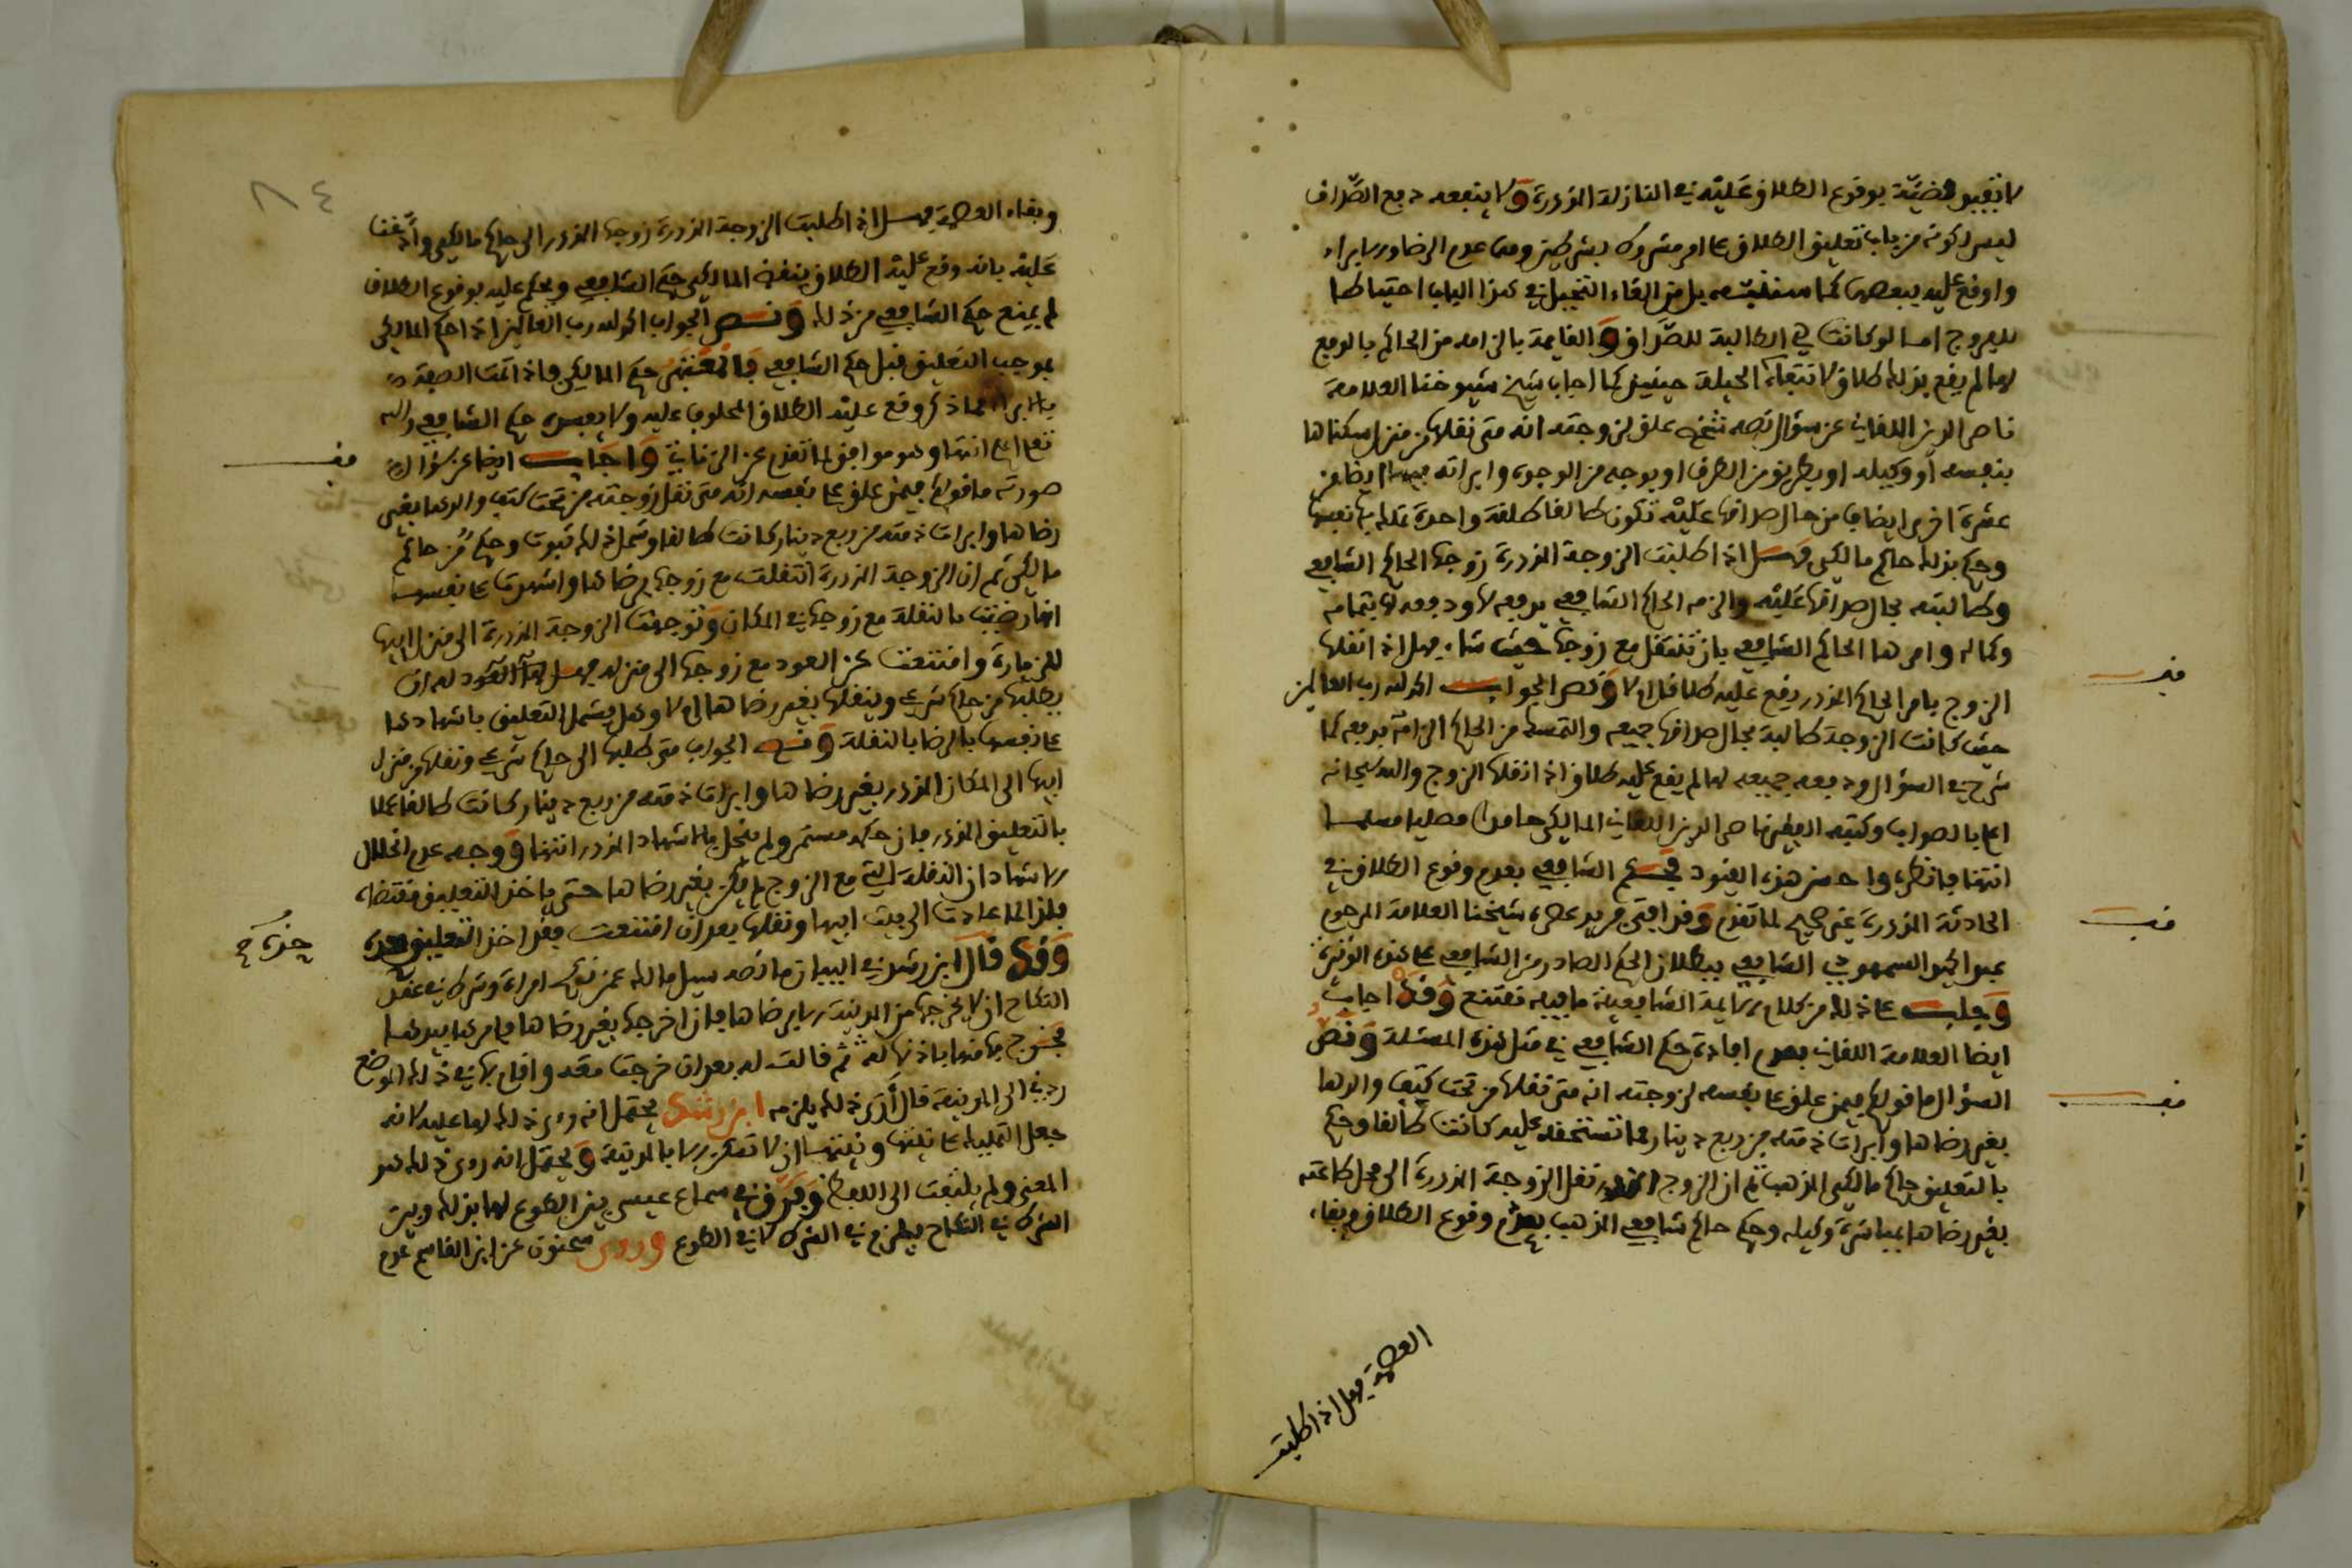 لا تقييد قضيّة بوقوع الطلاق عليه في النازلة المذكورة ولا ينفعه دفع الصّداق
ليس لكونه من باب تعليق الطلاق على امر مشروط بشرطين وهما عدم الرضا والابراء
واوقع عليه ببعضها كما بل من الغاء التحيل في هذا الباب احتياطا
للفروج اما لو كانت هي الطالبة للصّداق والقايمة بالزامه من الحاكم بالدفع
لها لم يقع بذلك طلاق لانتفاء الحيلة حينئذ كما اجاب شيخ شيوخنا العلامة
ناصر الدين اللقاني عن سؤال نصه شخص علق لزوجته انه متى نقلها من منزل سكناها
بنفسه او وكيله او بطريق من الطرق او بوجه من الوجوه وابراته ايضا من
عشرة اخرى ايضا من حال صداقها عليه تكون طالقا طلقة واحدة تملك بها نفسها
وحكم بذلك حاكم مالكي فهل اذا طلبت الزوجة المذكورة زوجها الحاكم الشافعي
وطالبته بحال صداقها عليه والزمه الحاكم الشافعي بدفعه لها ودفعه لها بتمامه
وكماله وامرها الحاكم الشافعي بان تنتقل مع زوجها حيث شاء فهل اذا نقلها
الزوج بامر الحاكم المذكور يقع عليه طلاق ام لا ونص الجواب الحمد لله رب العالمين
حيث كانت الزوجة طالبة بحال صداقها جميعه والتمسه من الحاكم الزامه بدفعه كما
شرح في السؤال ودفعه جميعه لها لم يقع عليه طلاق اذا نقلها الزوج والله سبحانه
اعلم بالصواب وكتبه الفقير ناصر الدين اللقاني المالكي حامدا مصليا مسلما
انتهى فانظره واحذر هذه القيود فحكم الشافعي بعدم وقوع الطلاق في
الحادثة المذكورة غير صحيح لما تقدم وقد افتى فريد عصره شيخنا العلامة المرحوم
عبد الحق السمهودي الشافعي ببطلان الحكم الصادر من الشافعي على هذه الوتيرة
وجلب على ذلك من كلام الايمة الشافعية ما فيه مقنع وقد اجاب
ايضا العلامة اللقاني بعدم افادة حكم الشافعي في مثل هذه المسئلة ونص
السؤال ما قولكم فيمن علق على نفسه لزوجته انه متى نقلها من تحت كتف والدها
بغير رضاها وابرات ذمته من ربع دينار مما تستحقه عليه كانت طالقا وحكم
بالتعليق حاكم مالكي المذهب ثم ان الزوج المذكور نقل الزوجة المذكورة الى محل طاعته
بغير رضاها بمباشرة وكيله وحكم حاكم شافعي المذهب بعدم وقوع الطلاق وبقاء
العصمة فهل اذا طلبت
٨٤
وبقاء العصمة فهل اذا طلبت الزوجة المذكورة زوجها المذكور الى حاكم مالكي وادّعت
عليه بانه وقع عليه الطلاق ينقض المالكي حكم الشافعي ويحكم عليه بوقوع الطلاق
ام يمنع حكم الشافعي من ذلك ونص الجواب الحمد لله رب العالمين اذا حكم المالكي
بموجب التعليق قبل حكم الشافعي فالمعتبر حكم المالكي فاذا تمت الصفة
بالابراء مما ذكر وقع عليه الطلاق المحلوف عليه ولا يفيده حكم الشافعي والله
تعالى اعلم انتهى وهو موافق لما تقدم عن الزناتي واجاب ايضا عن سؤال
صورته ما قولكم فيمن علق على نفسه انه متى نقل زوجته من تحت كتف والدها بغير
رضاها وابرات ذمته من ربع دينار كانت طالقا وشمل ذلك ثبوت وحكم من حاكم
مالكي ثم ان الزوجة المذكورة انتقلت مع زوجها برضاها واشهدت على نفسها
انها رضيت بالنقلة مع زوجها في المكان وتوجهت الزوجة المذكورة الى منزل ابيها
للزيارة وامتنعت من العود مع زوجها الى منزله فهل العود له ان
يطلبها من حاكم شرعي وينقلها بغير رضاها ام لا وهل يشمل التعليق باشهادها
على نفسها بالرضا بالنقلة ونصه الجواب متى طلبها الى حاكم شرعي ونقلها من منزل
ابيها الى المكان المذكور بغير رضاها وابرات ذمته من ربع دينار كانت طالقا عملا
بالتعليق المذكور فان حكمه مستمر ولم ينحل بالاشهاد المذكور انتهى ووجه عدم انحلال
الاشهاد ان النقلة التي مع الزوج لم تكن بغير رضاها حتى ياخذ التعليق مقتضاه
فلذا لما عادت الى بيت ابيها ونقلها بعد ان امتنعت فقد اخذ التعليق
وقد قال ابن رشد في البيان ما نصه سئل مالك عمن نكح امراة وشرط في عقد
النكاح ان لا يخرجها من المدينة الا برضاها فان اخرجها بغير رضاها فامرها بيدها
فخرج بها منها باذنها ثم قالت له بعد ان خرجت معه واقام بها في ذلك الموضع
ردني الى المدينة قال ارى ذلك يلزمه ابن رشد يحتمل انه راى ذلك لها عليه لانه
جعل التمليك على نيتها ونيتها ان لا تقر الا بالمدينة ويحتمل انه راى ذلك هو
المعنى ولم يلتفت الى اللفظ وفرق في سماع عيسى بين الطوع لها بذلك وبين
الشرط في النكاح يلزم في الشرط لا في الطوع وروى سحنون عن ابن القاسم عدم